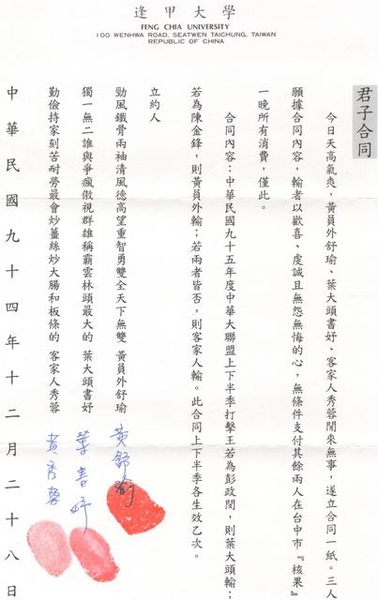 逢甲大學
FENG CHIA UNIVERSITY
100 WENHWA ROAD, SEATWEN TAICHUNG, TAIWAN
REPUBLIC OF CHINA
君子合同
今日天高氣爽，黃員外舒瑜、葉大頭書妤、客家人秀蓉閒來無事，遂立合同一紙。三人
願據合同內容，輸者以歡喜、虔誠且無怨無悔的心，無條件支付其餘兩人在台中市『核果』
一晚所有消費，僅此。
合同內容：中華民國九十五年度中華大聯盟上下半季打擊王若為彭政閔，則葉大頭輸；
若為陳金鋒，則黃員外輸；若兩者皆否，則客家人輸。此合同上下半季各生效乙次。
立約人
勁風鐵骨兩袖清風德高望重智勇雙全天下無雙 黃員外舒瑜 黃舒瑜
獨一無二誰與爭瘋傲視群雄稱霸雲林頭最大的 葉大頭書妤 葉書妤
勤儉持家刻苦耐勞最會炒薑絲炒大腸和板條的 客家人秀蓉 黃秀蓉
中華民國九十四年十二月二十八日